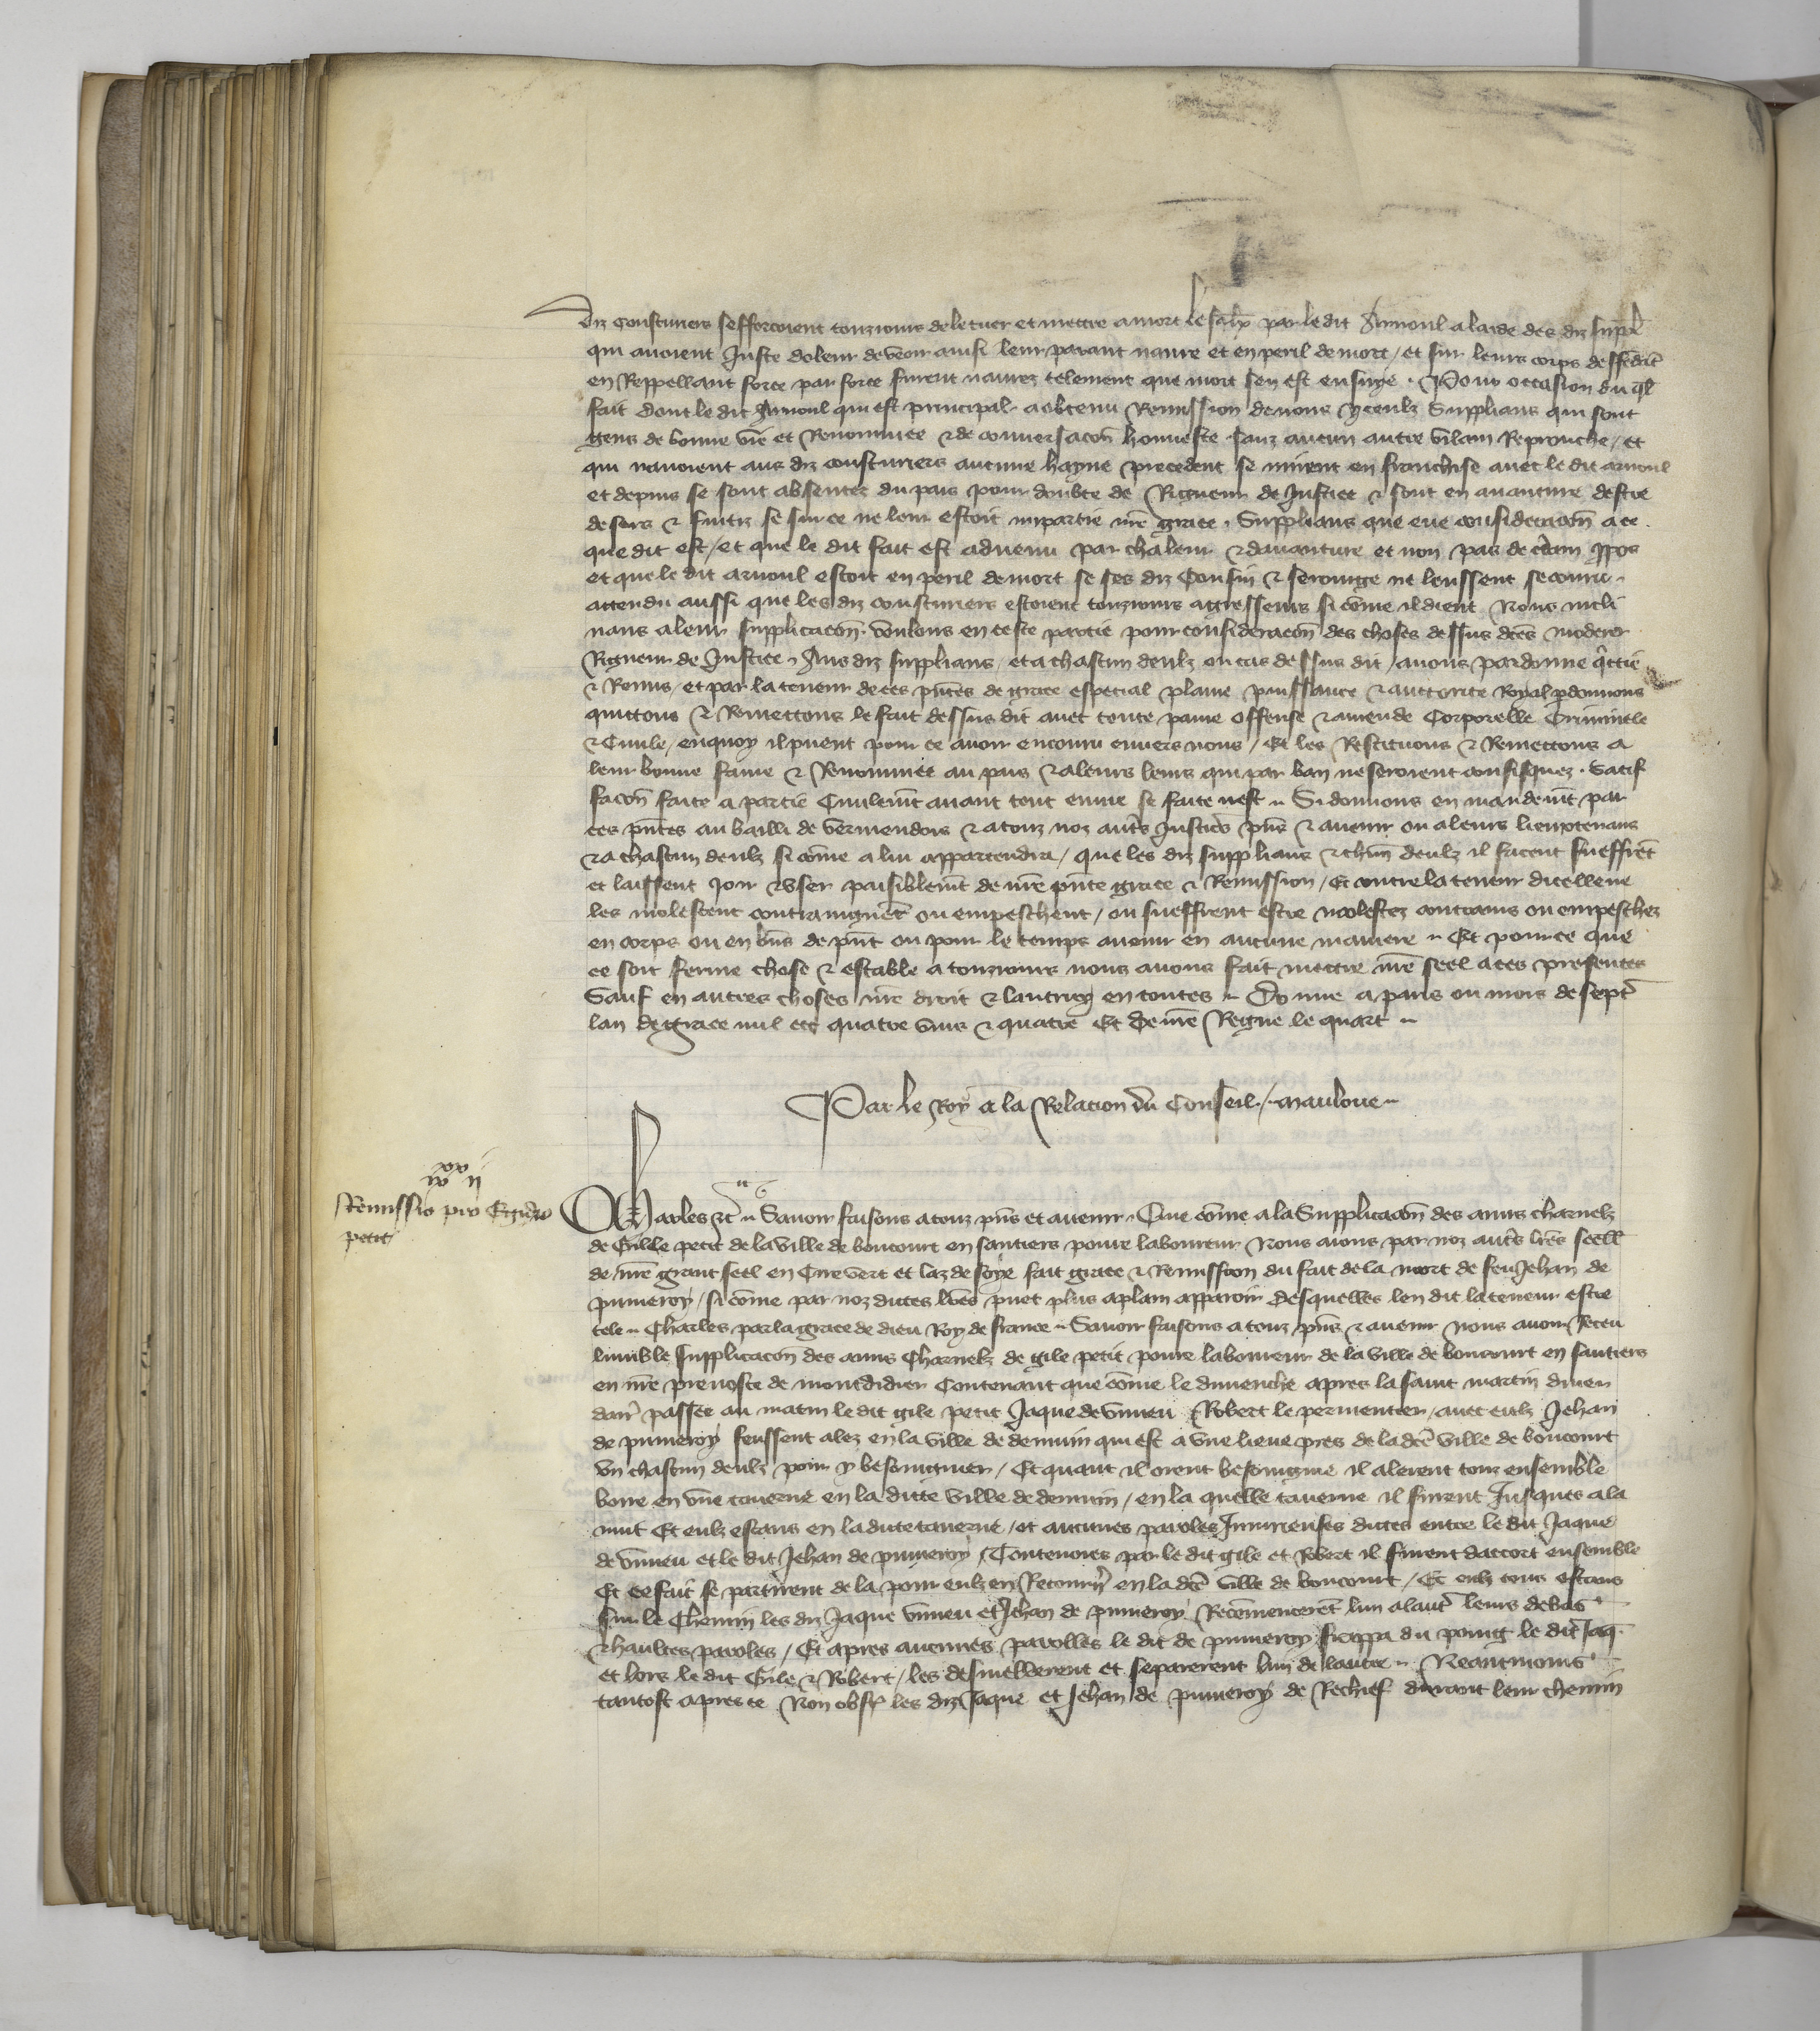 diz cousturiers sefforcoient touzjours de le tuer et mettre a mort lesqlx par le dit Arnoul a laide des diz suppl
qui avoient juste doleur de veoir ainsi leur parant navre et en peril de mort / et sur leurs corps deffendant
en Reppellant force par force furent navrez telement que mort sen est ensuye . Pour occasion du ql
fait dont le dit Arnoul qui est principal a obtenu Remission de nous yceulz Supplians qui sont
gens de bonne vie et Renommee & de conversacon honneste sanz aucun autre vilain Reprouche / et
qui navoient aus diz cousturiers aucune hayne precedent se mirent en franchise avec le dit arnoul
et depuis se sont absentez du pais pour doubte de Rigueur de Justice & sont en avanture destre
desers & fuitiz se sur ce ne leur estoit impartie nre grace . Supplians que eue consideracon a ce
que dit est / et que le dit fait est advenu par chaleur & davanture et non pas de certain ppos
et que le dit arnoul estoit en peril de mort se ses diz Cousin & serourge ne leussent secouru
attendu aussi que les diz cousturiers estoient touzjours aggresseurs si come il dient Nous incli
nans a leur supplicacon . voulons en ceste partie pour consideracon des choses dessus dces moderer
Rigueur de Justice . Aus diz supplians / et a chascun deulz ou cas dessus dit / avons pardonne qictie
& Remis / et par la teneur de ces pntes de grace especial plaine puissance & auctorite Royal pdonnons
quittons & Remettons le fait dessus dit avec toute paine offense & amende Corporelle Criminele
& Civile / en quoy il puent pour ce avoir encouru envers nous / Et les Restituons & Remettons a
leur bonne fame & Renommee au pais & a leurs biens qui par ban ne seroient confisquez . Satif
facon faite a partie Civilemt avant tout euvre se faite nest .. Si donnons en mandemt par
ces pntes au bailli de vermendois & a touz noz autrs Justicrs pns & avenir ou a leurs lieuxtenans
& a chascun deulz si come a lui appartendra / que les diz supplians & chun deulz il facent sueffrent
et laissent joir & user paisiblemt de nre pnte grace & Remission / Et contre la teneur dicelle ne
les molestent contraignent ou empeschent / ou sueffrent estre molestez contrains ou empeschez
en corps ou en bns de pnt ou pour le temps avenir en aucune maniere .. Et pour ce que
ce soit ferme chose & estable a touzjours nous avons fait mettre nre seel a ces presentes
Sauf en autres choses nre droit & lautruy en toutes .. Donne a paris ou mois de septr
lan de grace mil ccc quatre vins & quatre Et de nre Regne le quart ..
Par le Roy a la Relacion du Conseil ./. maulove ..
xx
iiii ij
Remissio pro Egidio
petit
Charles etc .. Savoir faisons a touz pns et avenir . Que come a la Supplicacon des amis charnelz
de Gille petit de la ville de boucourt en santiers povre laboureur Nous aions par noz autrs lres seell
de nre grant seel en Cire vert et laz de soye fait grace & Remission du fait de la mort de feu Jehan de
pumeroy / si come par noz dictes lres puet plus a plain apparoir desquelles len dit la teneur estre
tele .. Charles par la grace de dieu Roy de france .. Savoir faisons a touz pns & avenir nous avons Receu
lumble supplicacon des amis Charnelz de gile petit povre laboureur de la ville de boucourt en santiers
en nre prevoste de montdidier Contenant que come le dimenche apres la saint martin diver
danr passee au matin le dit gile petit Jaque de vinneu Robert le permentier / avec eulz Jehan
de pumeroy feussent alez en la ville de demuin qui est a une lieue pres de la dce ville de boucourt
un chascun deulz pour y besoingner / Et quant il orent besoingnie il alerent touz ensemble
boire en une taverne en la dicte ville de demuin / en la quelle taverne il furent Jusques a la
nuit Et eulz estans en la dicte taverne / et aucunes paroles Injurieuses dictes entre le dit Jaque
de vinneu et le dit Jehan de pumeroy / Contenores par le dit gile et Robert il furent daccort ensemble
Et ce fait se partirent de la pour eulz en Retournr en la dce ville de boucourt / Et eulz touz estans
sur le Chemin les diz Jaque vinneu et Jehan de pumeroy Recomencerent lun a lautr leurs debas
& haultes paroles / Et apres aucunes parolles le dit de pumeroy frappa du poing le dit Jaq
et lors le dit Gile & Robert / les desmellerent et separerent lun de lautre .. Neantmoins
tantost apres ce Non obst les diz Jaque et Jehan de pumeroy de Rechief durant leur chemin